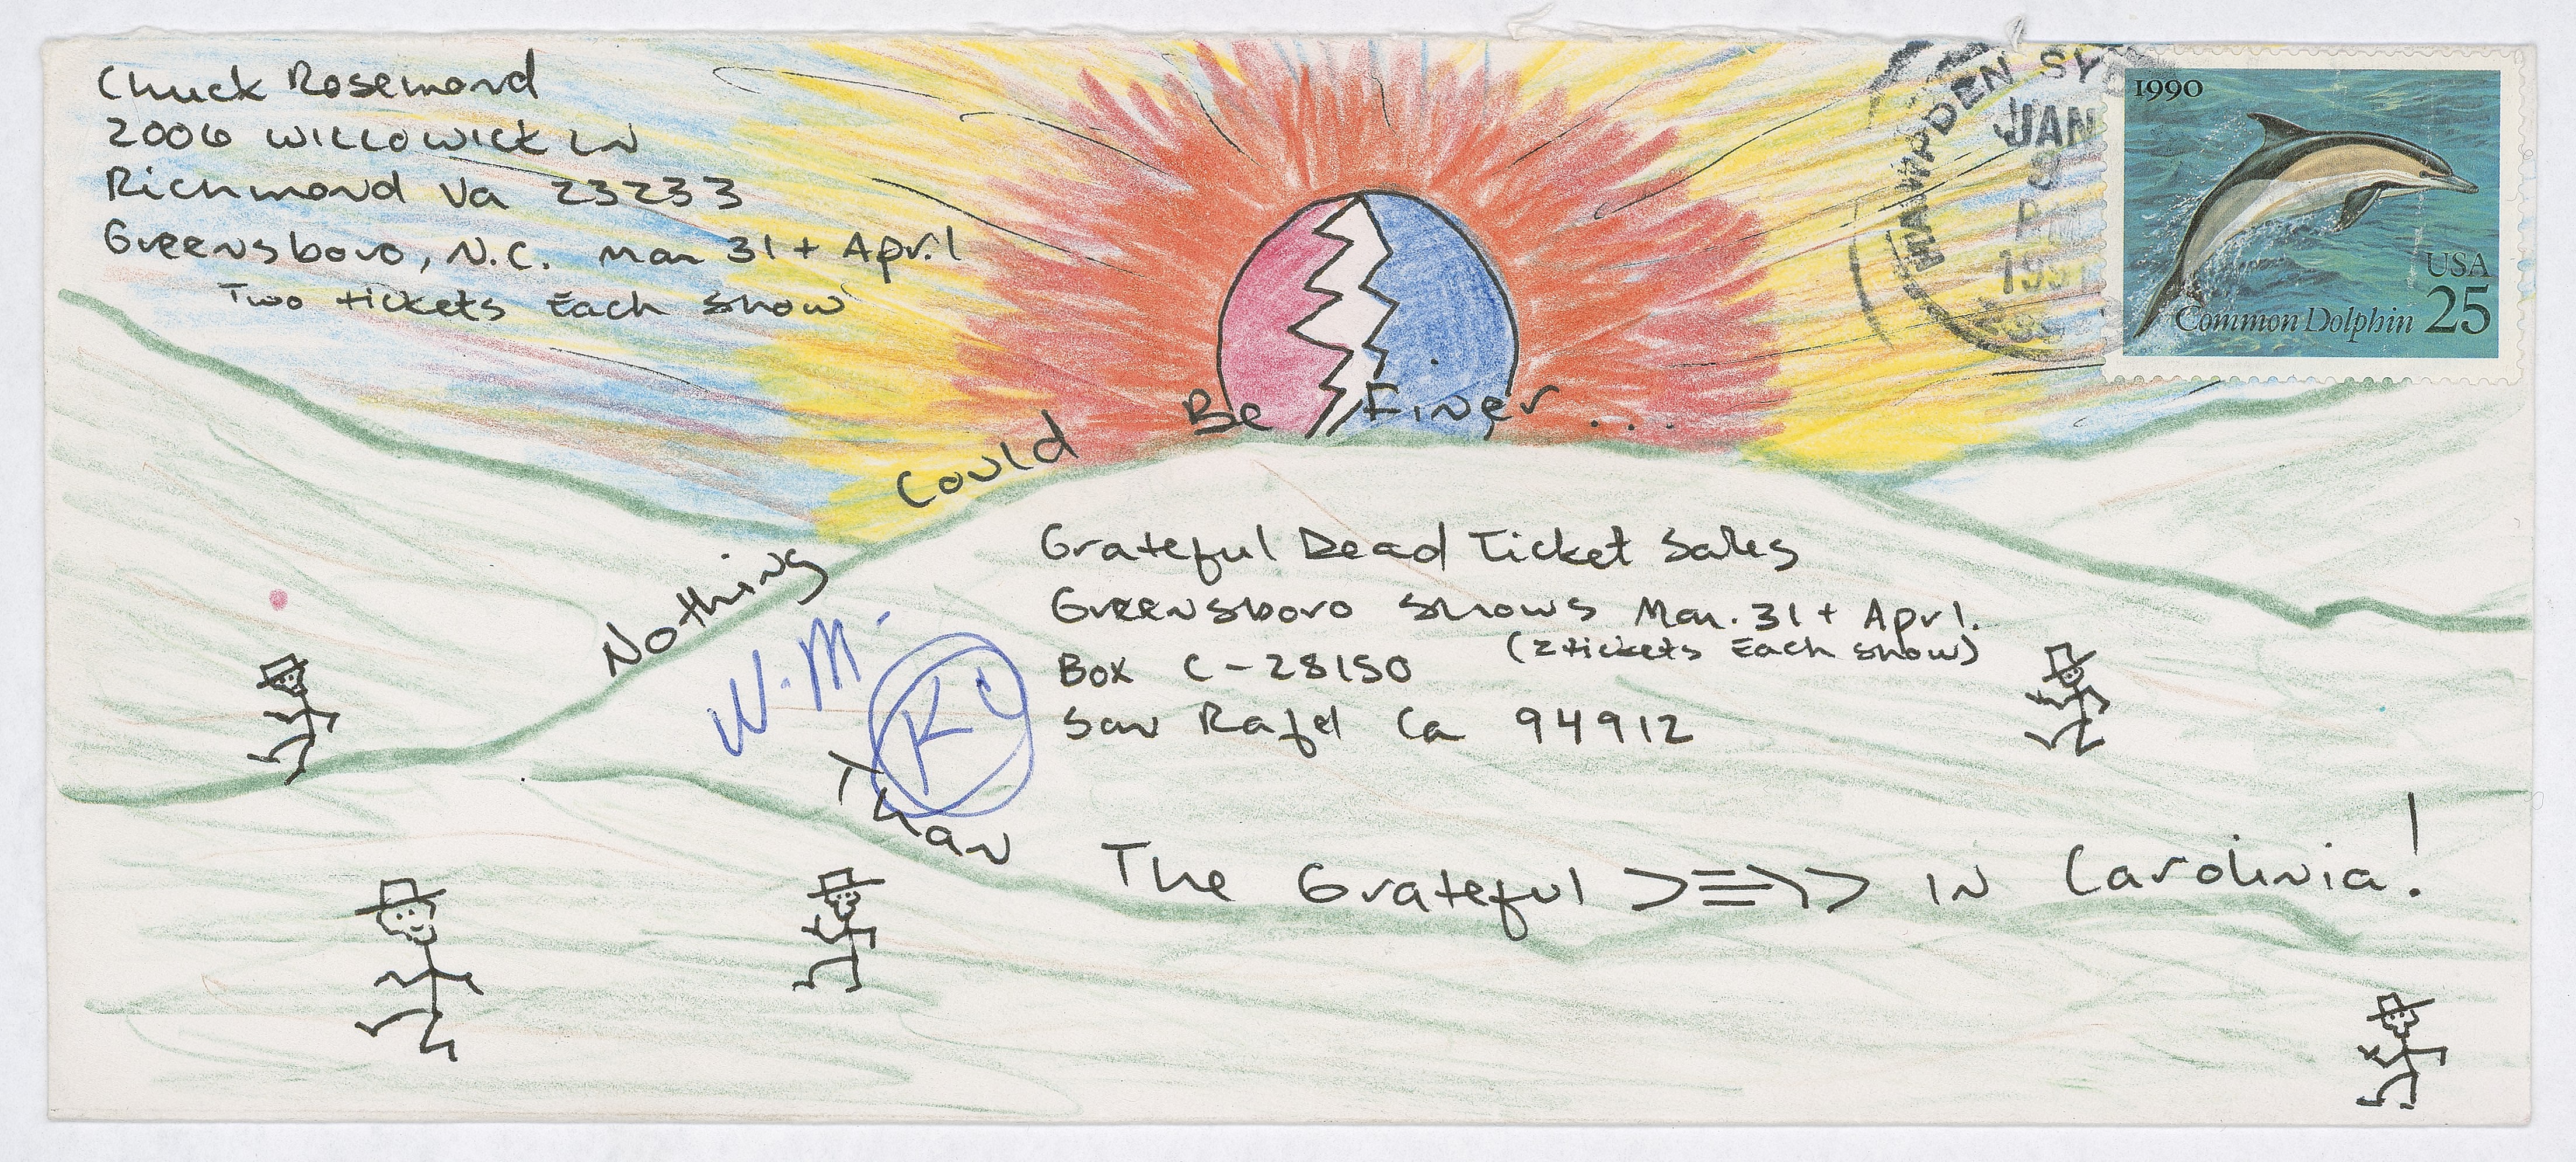 Chuck Rosemond
2006 Willowick Ln
Richmond Va 23233
Greensboro, N.C. Mar 31 + Apr. 1
Two tickets Each Show
HAMPDEN SYD
JAN
9
PM
1991
1990
USA
Common Dolphin 25
Nothing Could Be Finer...
Grateful Dead Ticket Sales
Greensboro Shows Mar. 31 + Apr 1.
(2 tickets Each Show)
Box C-28150
San Rafel Ca 94912
W.M.
RC
Than The Grateful >≡>>> in Carolinia!